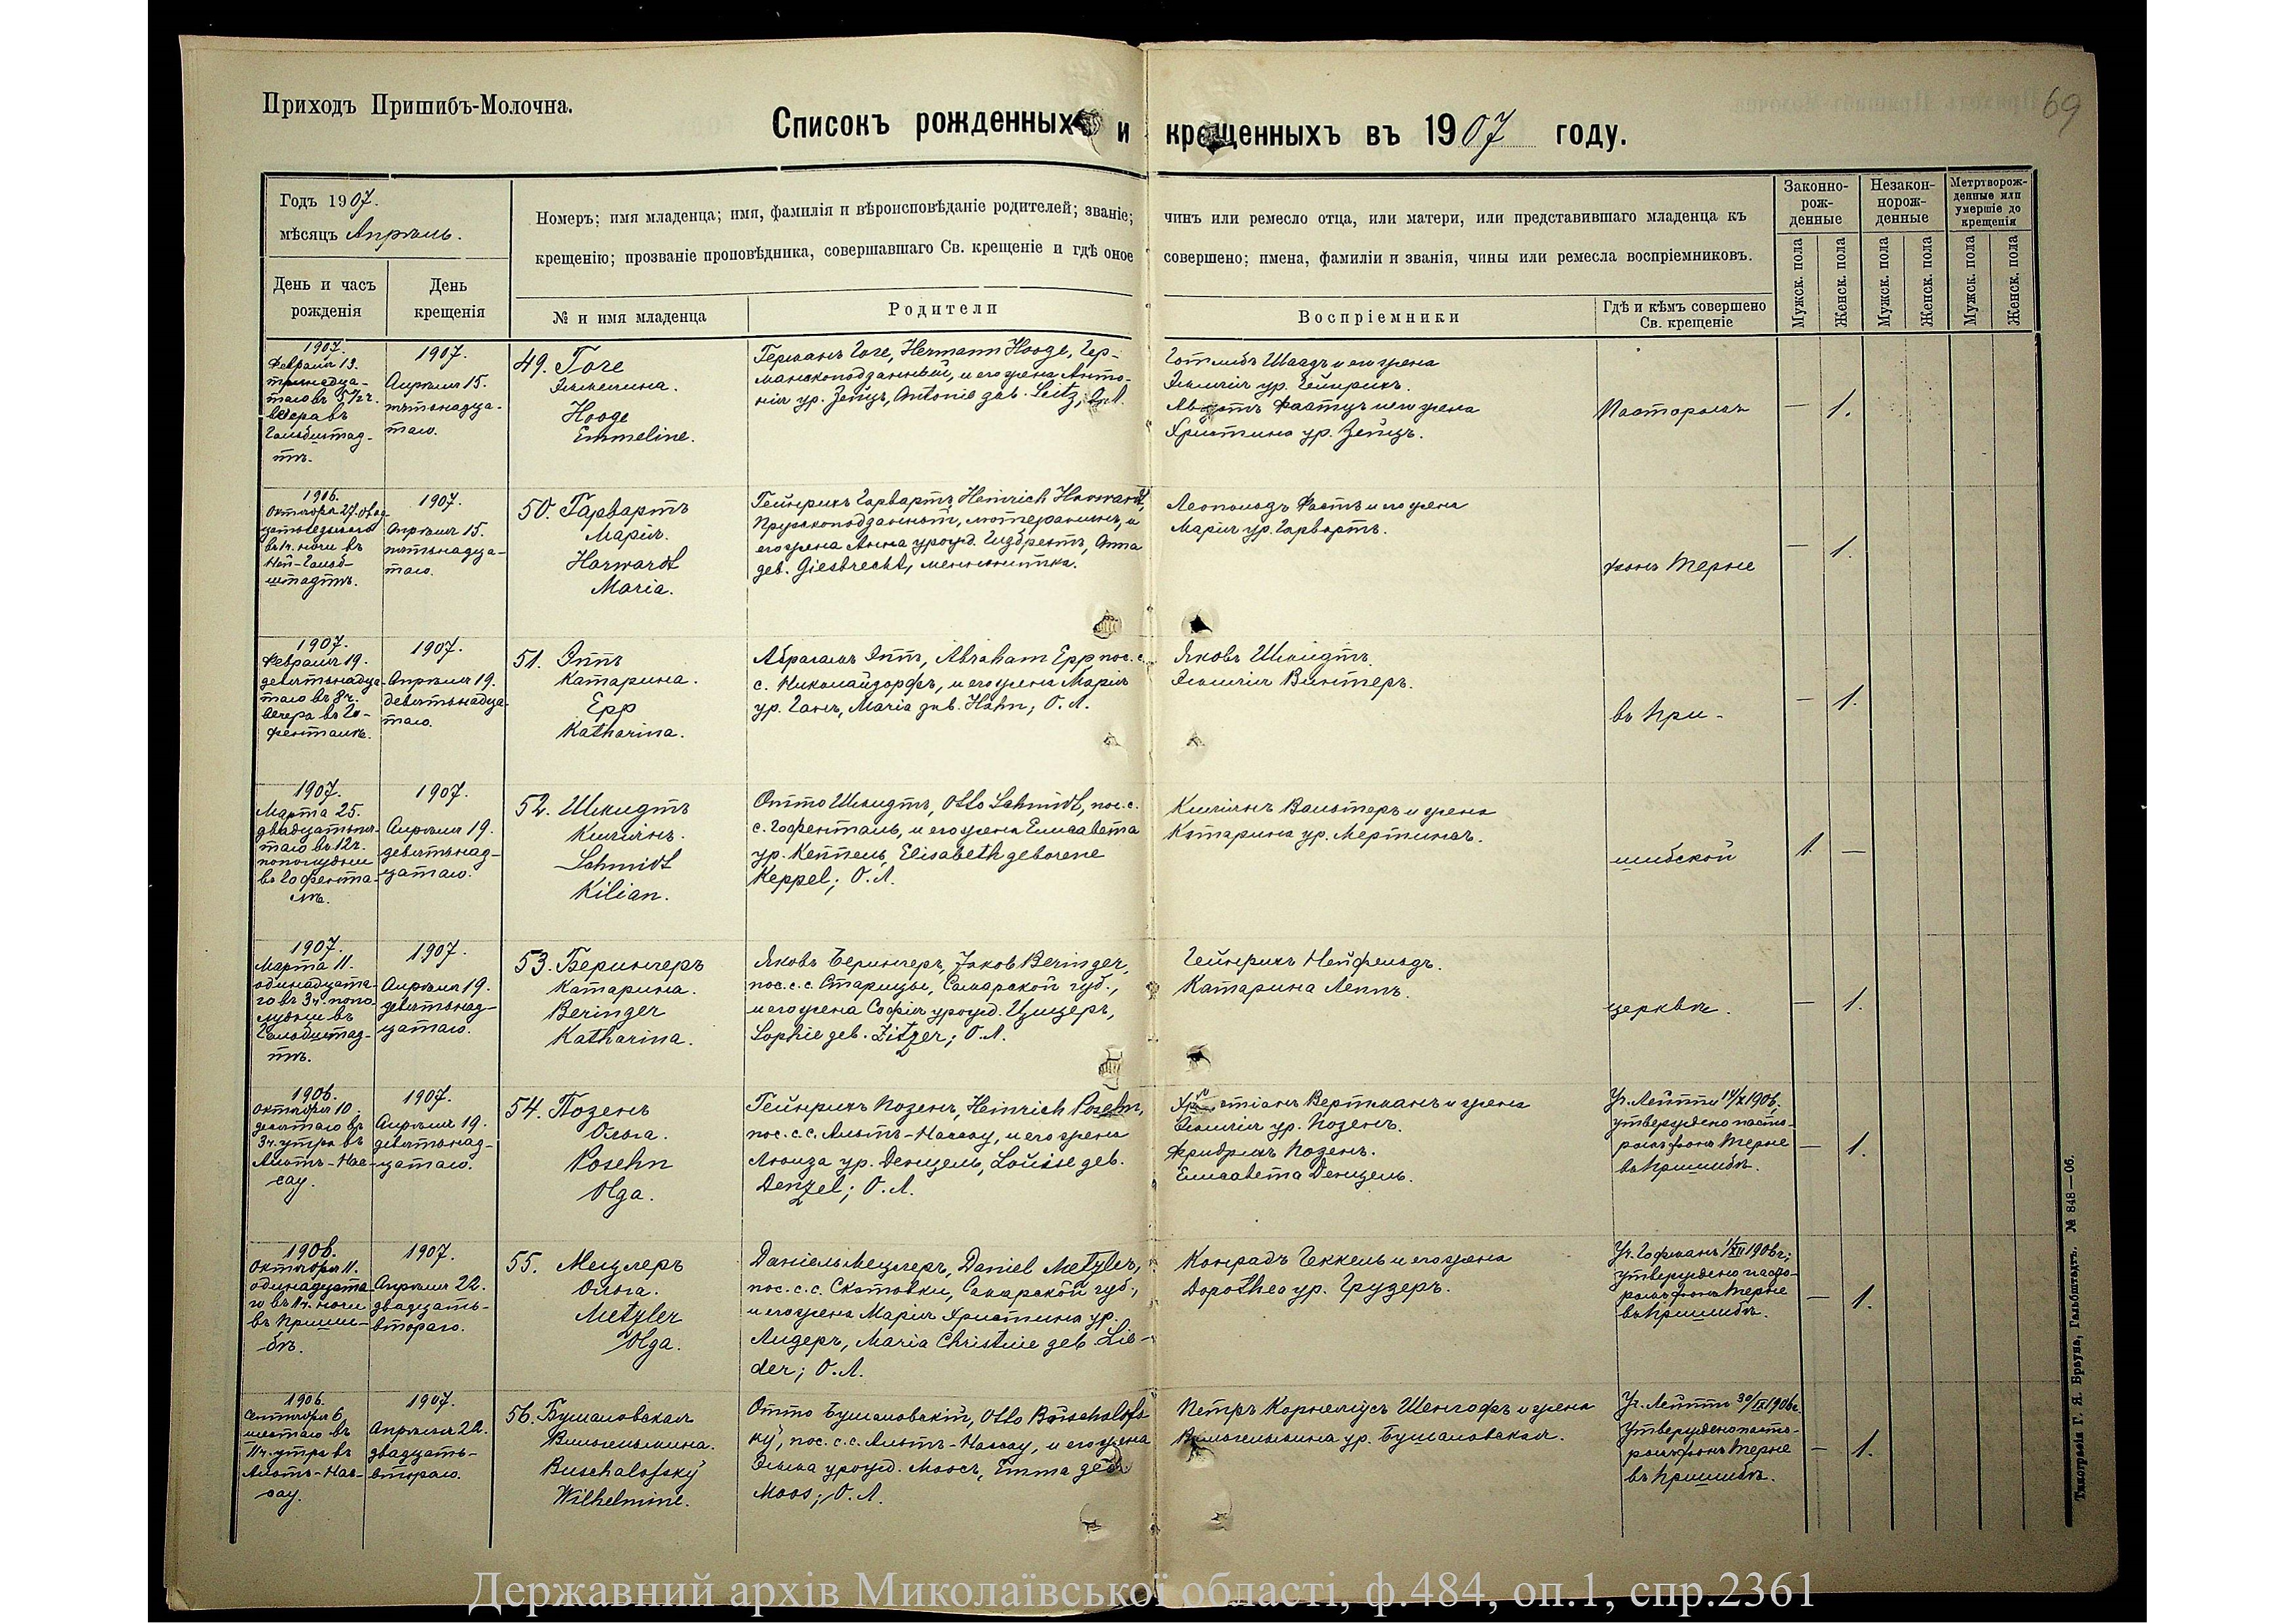 Приходъ Пришибъ-Молочна.
69
Списокъ рожденныхъ и крещенныхъ въ 1907 году.
Годъ 1907.
мѣсяцъ Апрѣль.
День и часъ рожденія
День крещенія
Номеръ; имя младенца; имя, фамилія и вѣроисповѣданіе родителей; званіе; чинъ или ремесло отца, или матери, или представившаго младенца къ
крещенію; прозваніе проповѣдника, совершавшаго Св. крещеніе и гдѣ оное совершено; имена, фамиліи и званія, чины или ремесла воспріемниковъ.
№ и имя младенца
Родители
Воспріемники
Гдѣ и кѣмъ совершено Св. крещеніе
Законно-рож-денные
Незакон-норож-денные
Метртворож-денные или умершіе до крещенія
Мужск. пола
Женск. пола
Мужск. пола
Женск. пола
Мужск. пола
Женск. пола
1907.
Февраля 13.
тринадца-
таго въ 5½ ч.
вечера въ
Гальбштад-
тѣ.
1907.
Апрѣля 15.
пятьнадца-
таго.
49. Гоге
Эммелина.
Hooge
Emmeline.
Германъ Гоге, Hermann Hooge, Гер-
манскоподданный, и его жена Анто-
нія ур. Зейцъ, Antonie geb. Seitz; О.Л.
Готлибъ Шаадъ и его жена
Эмилія ур. Гейнрихъ.
Августъ Фаатцъ и его жена
Христина ур. Зейцъ.
Пасторомъ
— 1.
1906.
Октября 27. двад-
цатьседьмого
въ 1ч. ночи въ
Ней-Гальб-
штадтѣ.
1907.
Апрѣля 15.
пятьнадца-
таго.
50. Гарвартъ
Марія.
Harwardt
Maria.
Гейнрихъ Гарвартъ, Heinrich Harwardt,
Прусскоподданный, лютеранинъ, и
его жена Анна урожд. Гизбрехтъ, Anna
geb. Giesbrecht, меннонитка.
Леопольдъ Фастъ и его жена
Марія ур. Гарвартъ.
фонъ Терне
— 1.
1907.
Февраля 19.
девятьнадца-
таго въ 8ч.
вечера въ Го-
фенталѣ.
1907.
Апрѣля 19.
девятьнадца-
таго.
51. Эппъ
Катарина.
Epp
Katharina.
Абрагамъ Эппъ, Abraham Epp, пос. с.
с. Николайдорфъ, и его жена Марія
ур. Ганъ, Maria geb. Hahn; О.Л.
Яковъ Шмидтъ.
Эмилія Винтеръ.
въ При-
— 1.
1907.
Марта 25.
двадцатьпя-
таго въ 12ч.
пополудни
въ Гофента-
лѣ.
1907.
Апрѣля 19.
девятьнад-
цатаго.
52. Шмидтъ
Киліянъ.
Schmidt
Kilian.
Отто Шмидтъ, Otto Schmidt, пос. с.
с. Гофенталь, и его жена Елисавета
ур. Кеппель, Elisabeth geborene
Keppel; О.Л.
Киліянъ Вальтеръ и жена
Катарина ур. Мертинсъ.
шибской
1. —
1907.
Марта 11.
одинадцата-
го въ 3ч. попо-
лудни въ
Гальбштад-
тѣ.
1907.
Апрѣля 19.
девятьнад-
цатаго.
53. Берингеръ
Катарина.
Beringer
Katharina.
Яковъ Берингеръ, Jakob Beringer,
пос. с. с. Старицы, Самарской губ.,
и его жена Софія урожд. Цицеръ,
Sophie geb. Zitzer; О.Л.
Гейнрихъ Нейфельдъ.
Катарина Леппъ.
церквѣ.
— 1.
1906.
Октября 10.
десятаго въ
3ч. утра въ
Альтъ-Нас-
сау.
1907.
Апрѣля 19.
девятьнад-
цатаго.
54. Позенъ
Ольга.
Posehn
Olga.
Гейнрихъ Позенъ, Heinrich Posehn,
пос. с. с. Альтъ-Нассау, и его жена
Люиза ур. Денцель, Louise geb.
Denzel; О.Л.
Христіанъ Вертманъ и жена
Эмилія ур. Позенъ.
Фридрихъ Позенъ.
Елисавета Денцель.
Уч. Лейтти 14/X 1906,
утверждено пасто-
ромъ фонъ Терне
въ Пришибѣ.
— 1.
1906.
Октября 11.
одинадцата-
го въ 1ч. ночи
въ Приши-
бѣ.
1907.
Апрѣля 22.
двадцать-
втораго.
55. Мецлеръ
Ольга.
Metzler
Olga.
Даніель Мецлеръ, Daniel Metzler,
пос. с. с. Скатовки, Самарской губ.,
и его жена Марія Христина ур.
Лидеръ, Maria Christine geb. Lie-
der; О.Л.
Конрадъ Геккель и его жена
Доротhea ур. Грудеръ.
Уч. Гофманъ 1/XII 1906г.;
утверждено пасто-
ромъ фонъ Терне
въ Пришибѣ.
— 1.
1906.
Сентября 6.
шестаго въ
11ч. утра въ
Альтъ-Нас-
сау.
1907.
Апрѣля 22.
двадцать-
втораго.
56. Бушаловская
Вильгельмина.
Buschalofsky
Wilhelmine.
Отто Бушаловскій, Otto Buschalofs-
ky, пос. с. с. Альтъ-Нассау, и его жена
Эмма урожд. Моосъ, Emma geb.
Moos; О.Л.
Петръ Корнеліусъ Шенгофъ и жена
Вильгельмина ур. Бушаловская.
Уч. Лейтти 30/IX 1906г.
Утверждено пасто-
ромъ фонъ Терне
въ Пришибѣ.
— 1.
Типографія Г. Я. Брауна, Гальбштадтъ. № 848—06.
Державний архів Миколаївської області, ф.484, оп.1, спр.2361